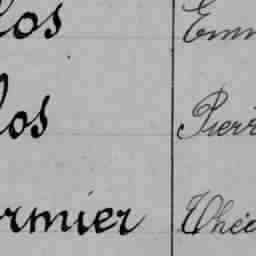 los Emm
los Pierr
rmier Thée